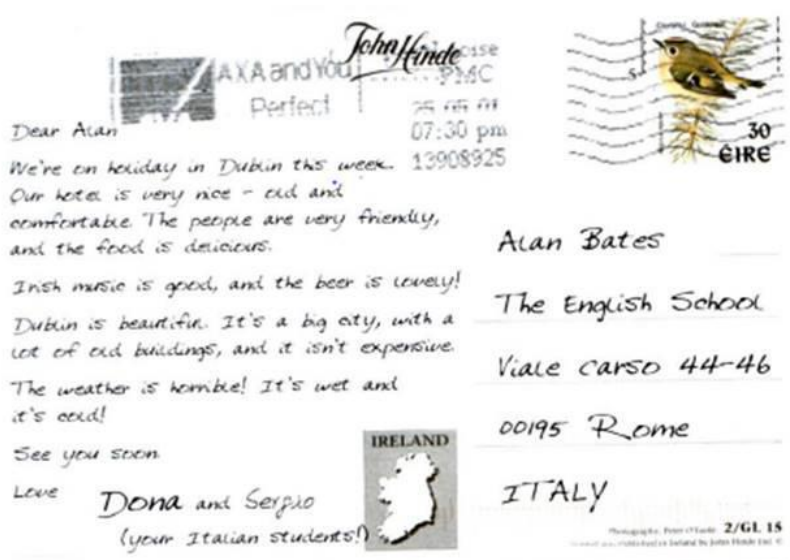 John Hinde
AXA and You
Perfect
PMC
25 05 01
07:30 pm
13908925
30
ÉIRE
Dear Alan
We're on holiday in Dublin this week.
Our hotel is very nice - old and
comfortable. The people are very friendly,
and the food is delicious.
Irish music is good, and the beer is lovely!
Dublin is beautiful. It's a big city, with a
lot of old buildings, and it isn't expensive.
The weather is horrible! It's wet and
it's cold!
See you soon
Love
Dona and Sergio
(your Italian students!)
Alan Bates
The English School
Viale Carso 44-46
00195 Rome
ITALY
IRELAND
2/GL 15